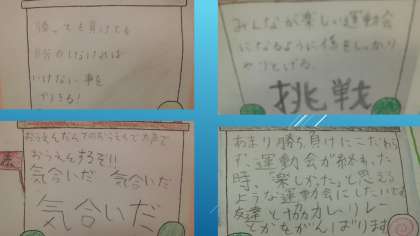 勝っても負けても
自分がしなければ
いけない事を
やりきる!
みんなが楽しい運動会
になるように係をしっかり
やりとげる。
挑戦
おうえんだんでのおうえんで大声で
おうえんするぞ!!
気合いだ 気合いだ
気合いだ
あまり勝ち負けにこだわら
ず、運動会が終わった
時、「楽しかった」と思える
ような運動会にしたいです。
友達と協力しリレー
とかがんばります